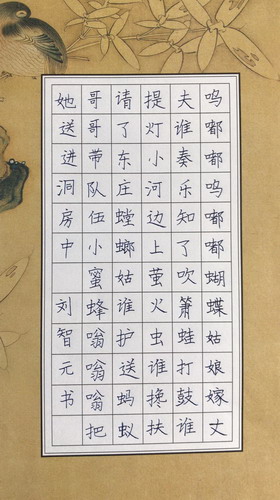 呜嘟嘟呜嘟嘟蝴蝶姑娘嫁丈
夫谁奏乐知了吹箫蛙打鼓谁
提灯小河边上萤火虫谁搀扶
请了东庄螳螂姑谁护送蚂蚁
哥哥带队伍小蜜蜂嗡嗡嗡把
她送进洞房中 刘智元书